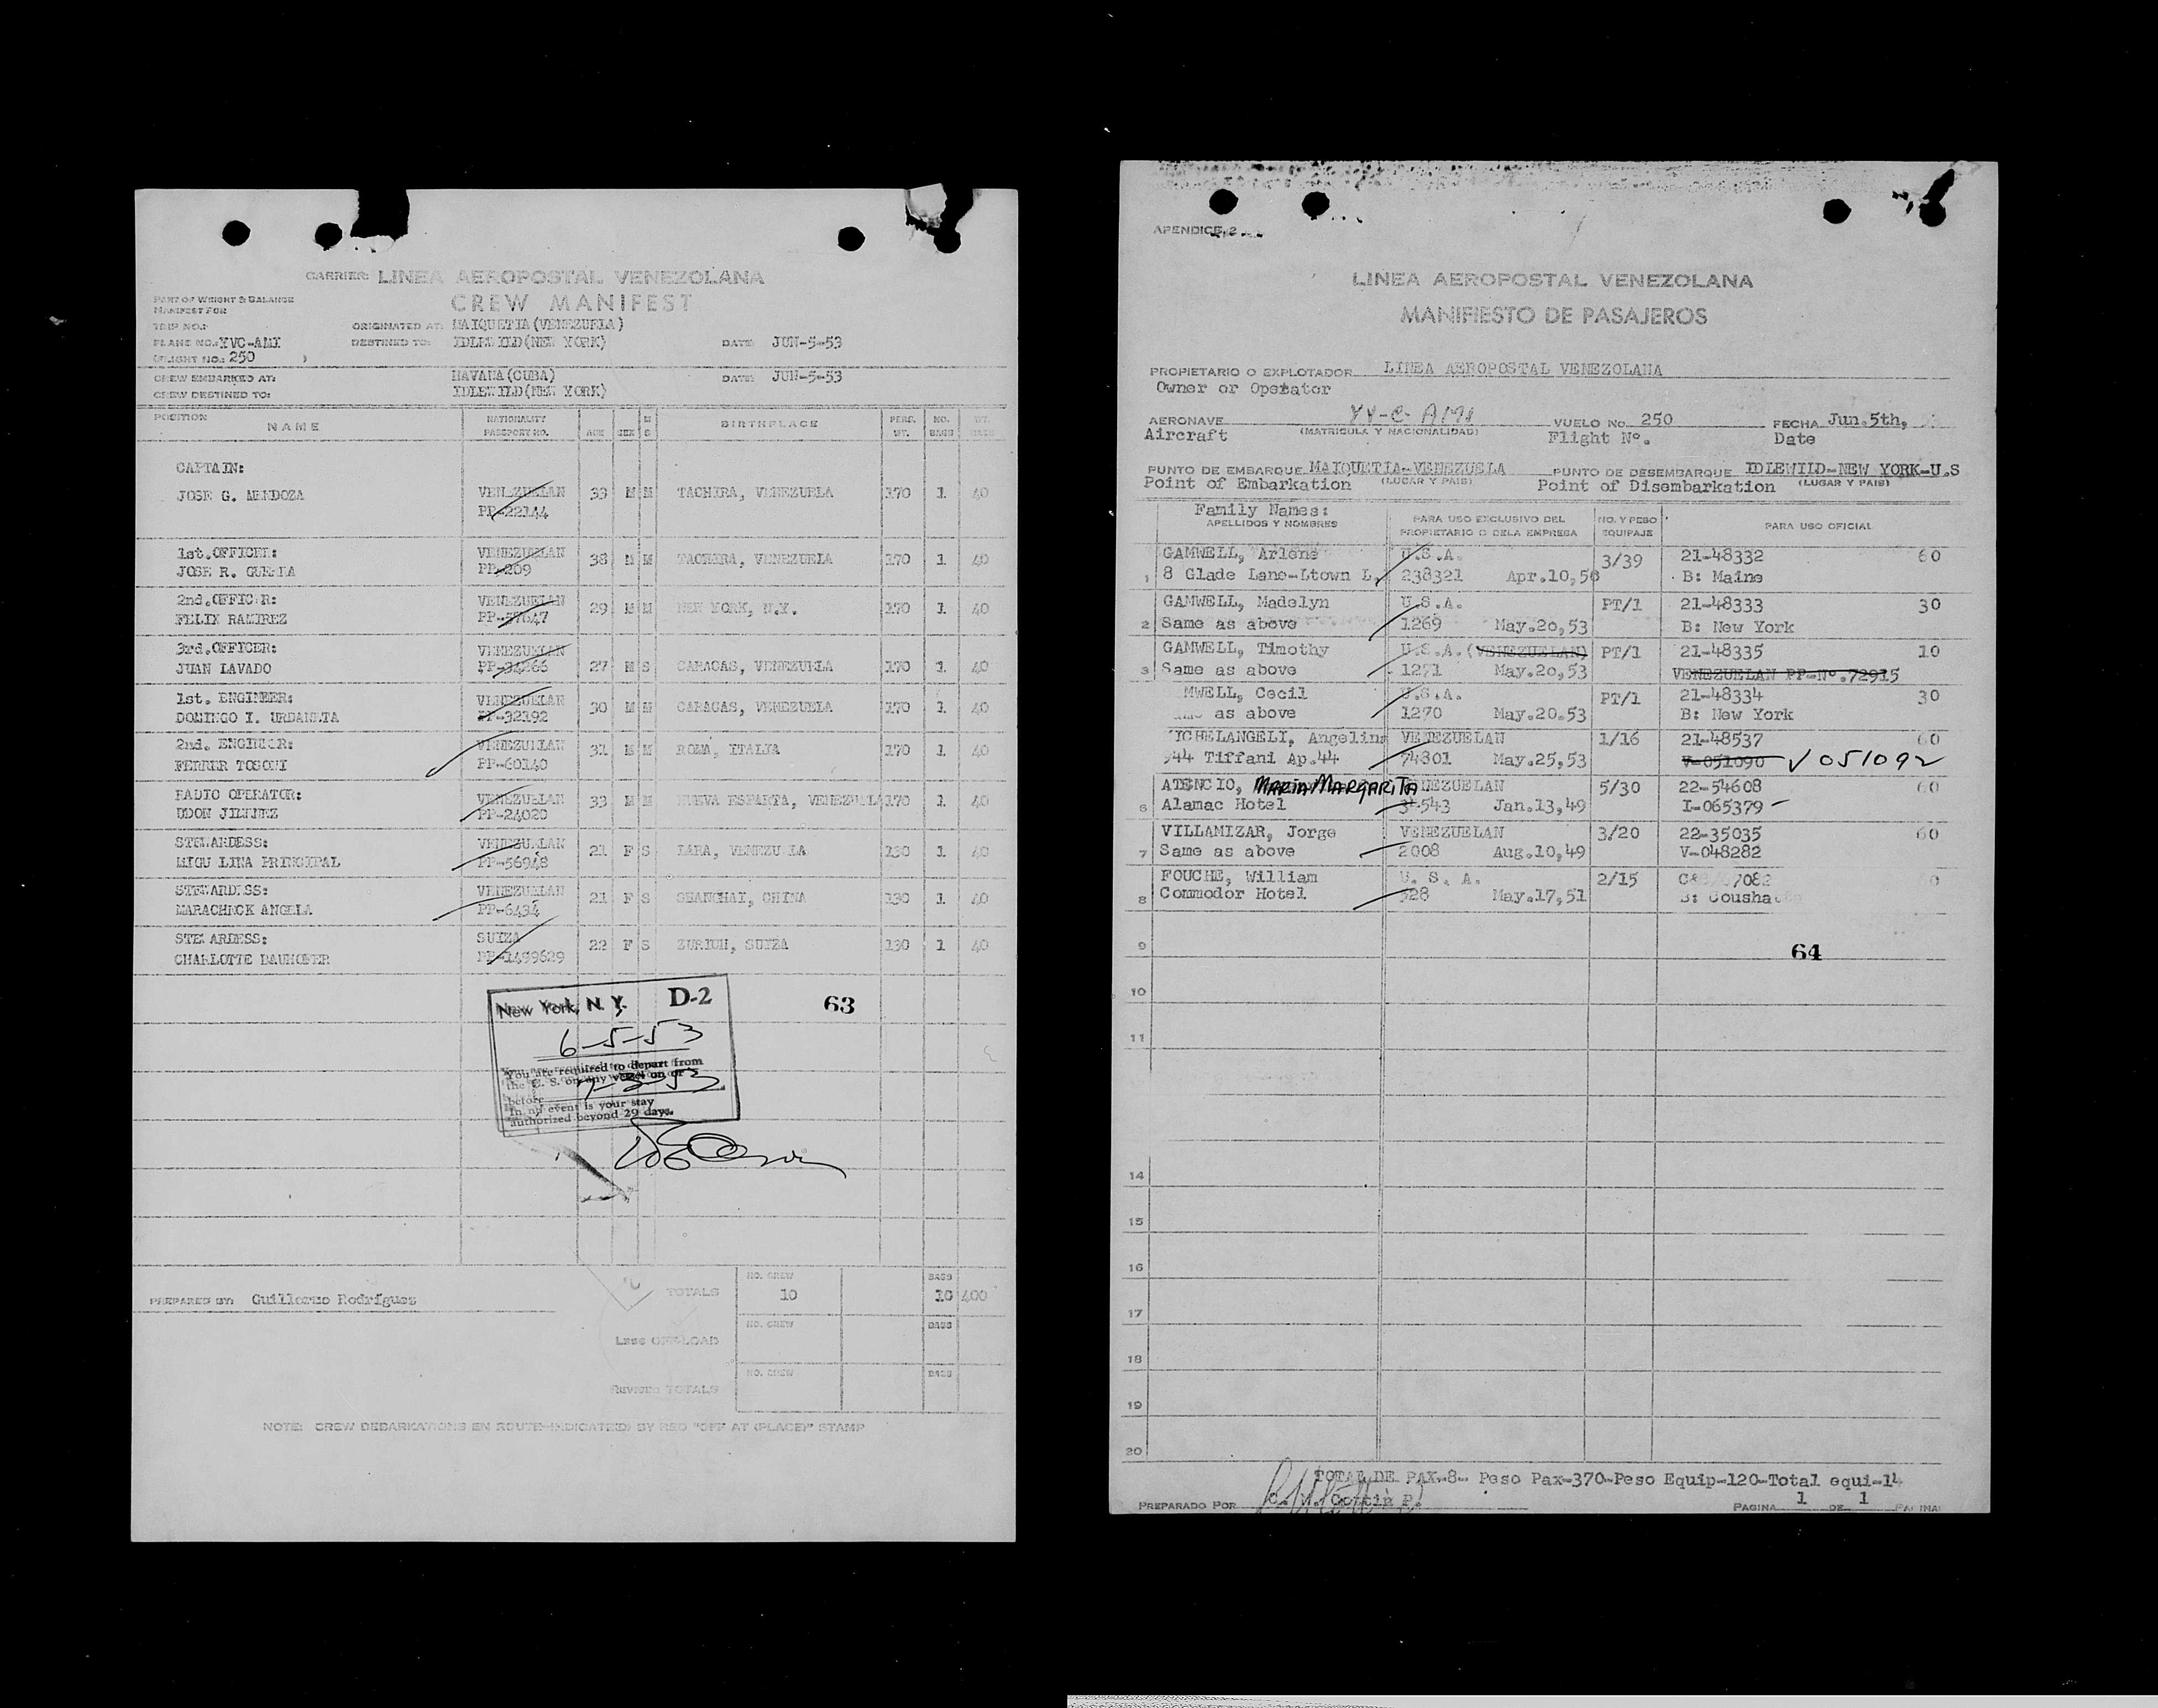 CARRIER: LINEA AEROPOSTAL VENEZOLANA
CREW MANIFEST
PART OF WEIGHT & BALANCE
MANIFEST FOR
TRIP NO.: ORIGINATED AT: MAIQUETIA(VENEZUELA)
PLANE NO.: YVC-AMI DESTINED TO: IDLEWILD(NEW YORK) DATE: JUN-5-53
(FLIGHT NO.: 250 )
CREW EMBARKED AT: HAVANA(CUBA) DATE: JUN-5-53
CREW DESTINED TO: IDLEWILD(NEW YORK)
POSITION NAME NATIONALITY PASSPORT NO. AGE SEX M S BIRTHPLACE PERS. WT. NO. BAGS WT. BAGS
CAPTAIN:
JOSE G. MENDOZA VENEZUELAN 39 M M TACHIRA, VENEZUELA 170 1 40
PP-22144
1st.OFFICER: VENEZUELAN 38 M M TACHIRA, VENEZUELA 170 1 40
JOSE R. GUERRA PP-269
2nd.OFFICER: VENEZUELAN 29 M M NEW YORK, N.Y. 170 1 40
FELIX RAMIREZ PP-57647
3rd.OFFICER: VENEZUELAN
JUAN LAVADO PP-34266 27 M S CARACAS, VENEZUELA 170 1 40
1st. ENGINEER: VENEZUELAN 30 M M CARACAS, VENEZUELA 170 1 40
DOMINGO I. URDANETA PP-32192
2nd. ENGINEER: VENEZUELAN 31 M M ROMA, ITALIA 170 1 40
FERRER TOSONI PP-60140
RADIO OPERATOR: VENEZUELAN 33 M M NUEVA ESPARTA, VENEZUELA 170 1 40
UDON JIMENEZ PP-24020
STEWARDESS: VENEZUELAN 21 F S LARA, VENEZUELA 130 1 40
MIGUELINA PRINCIPAL PP-56948
STEWARDESS: VENEZUELAN 21 F S SHANGHAI, CHINA 130 1 40
MARACHECK ANGELA PP-6434
STEWARDESS: SUIZA 22 F S ZURICH, SUIZA 130 1 40
CHARLOTTE PP-1499629
63
New York, N. Y. D-2
6-5-53
You are required to depart from
the U. S. on any vessel on or
before 7-3-53
In no event is your stay
authorized beyond 29 days.
PREPARED BY: Guillermo Rodríguez
TOTALS NO. CREW 10 BAGS 10 400
Less OFF-LOAD NO. CREW BAGS
Reviero TOTALS NO. CREW BAGS
NOTE: CREW DEBARKATIONS EN ROUTE-INDICATED) BY RED "OFF AT (PLACE)" STAMP
APENDICE 2
LINEA AEROPOSTAL VENEZOLANA
MANIFIESTO DE PASAJEROS
PROPIETARIO O EXPLOTADOR LINEA AEROPOSTAL VENEZOLANA
Owner or Operator
AERONAVE YV-C-AMI VUELO No. 250 FECHA Jun.5th,
Aircraft (MATRICULA Y NACIONALIDAD) Flight Nº. Date
PUNTO DE EMBARQUE MAIQUETIA-VENEZUELA PUNTO DE DESEMBARQUE IDLEWILD-NEW YORK-U.S
Point of Embarkation (LUGAR Y PAIS) Point of Disembarkation (LUGAR Y PAIS)
Family Names: APELLIDOS Y NOMBRES PARA USO EXCLUSIVO DEL PROPIETARIO O DE LA EMPRESA NO. Y PESO EQUIPAJE PARA USO OFICIAL
GAMWELL, Arlene U.S.A. 3/39 21-48332 60
1 8 Glade Lane-Ltown L. 238321 Apr.10,56 B: Maine
GAMWELL, Madelyn U.S.A. PT/1 21-48333 30
2 Same as above 1269 May.20,53 B: New York
GAMWELL, Timothy U.S.A.(VENEZUELAN) PT/1 21-48335 10
3 Same as above 1271 May.20,53 VENEZUELAN PP-Nº.72915
MWELL, Cecil U.S.A. PT/1 21-48334 30
as above 1270 May.20.53 B: New York
ICHELANGELI, Angelina VENEZUELAN 1/16 21-48537 60
944 Tiffani Ap.44 74801 May.25,53 V-051090 V 051092
ATENCIO, MARIA MARGARITA VENEZUELAN 5/30 22-54608 60
6 Alamac Hotel 34543 Jan.13,49 I-065379
VILLAMIZAR, Jorge VENEZUELAN 3/20 22-35035 60
7 Same as above 2008 Aug.10,49 V-048282
FOUCHE, William U. S. A. 2/15 7082 60
8 Commodor Hotel 328 May.17,51 B: Cousha
9
64
10
11
14
15
16
17
18
19
20
TOTAL DE PAX-8- Peso Pax-370-Peso Equip-120-Total equi-14
PREPARADO POR PAGINA 1 DE 1 PAGINA